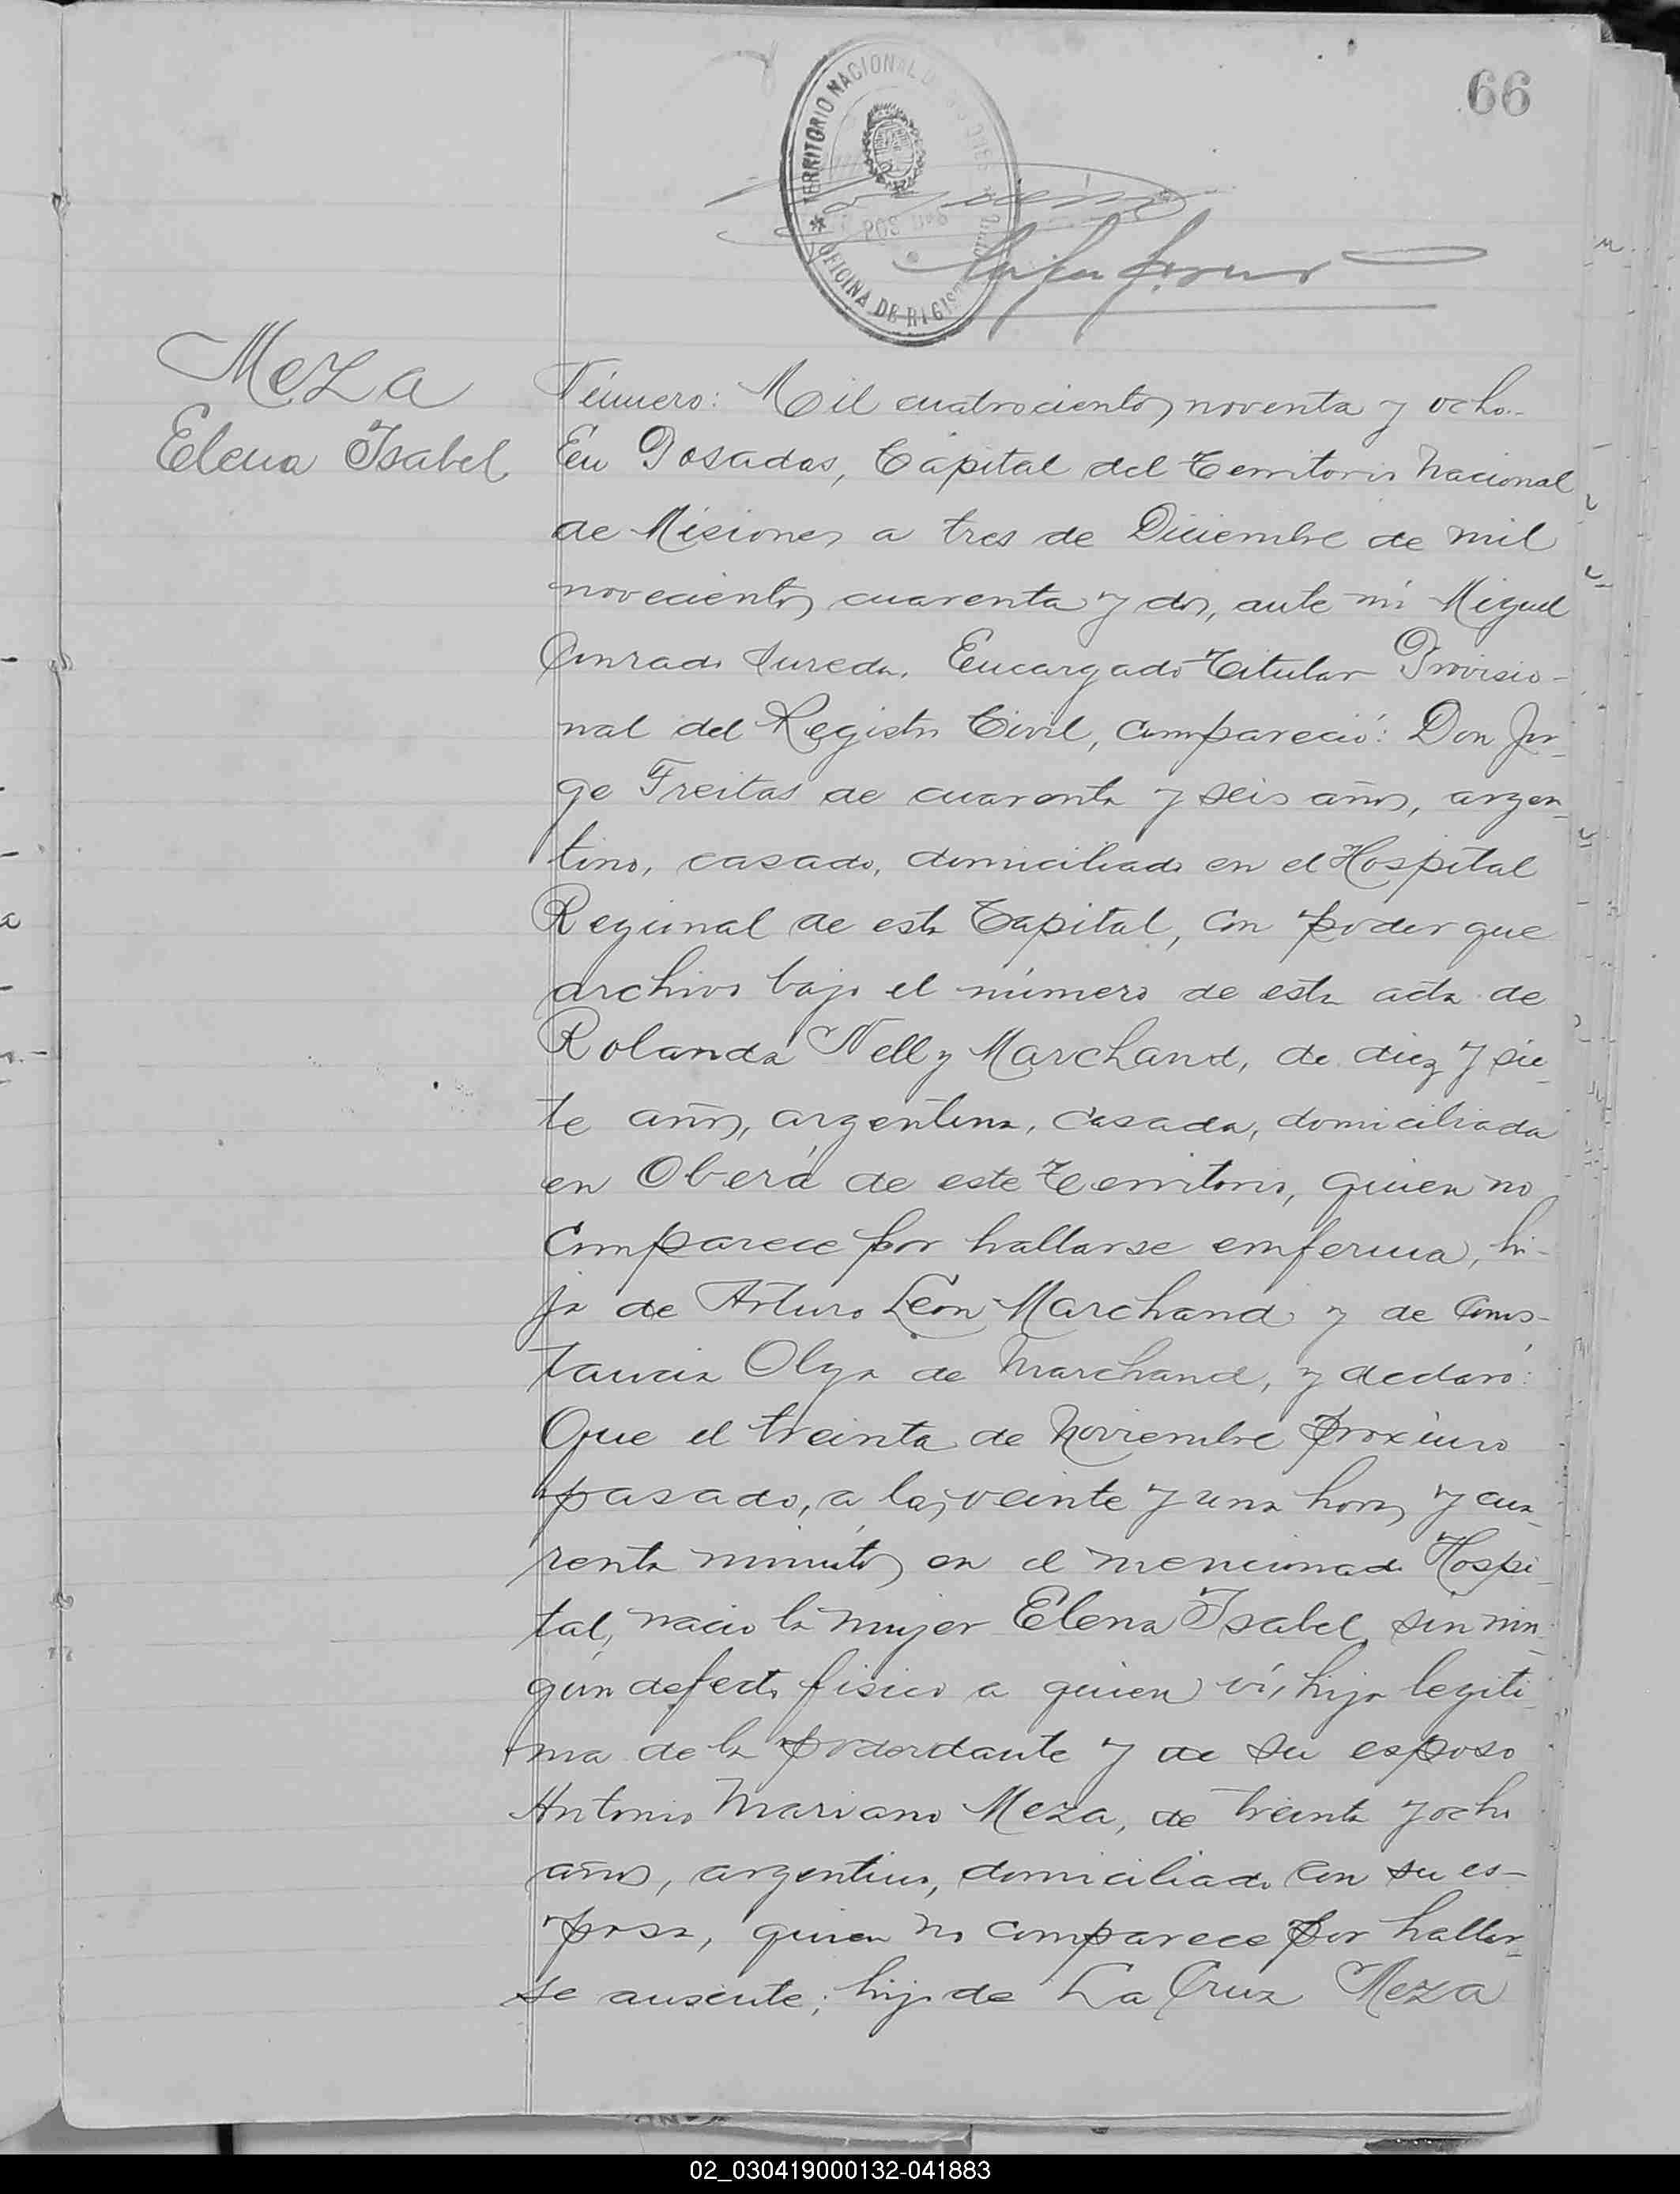 66
TERRITORIO NACIONAL
OFICINA DE REGIST
Meza
Elena Isabel
Número: Mil cuatrocientos noventa y ocho.-
En Posadas, Capital del Territorio Nacional
de Misiones a tres de Diciembre de mil
novecientos cuarenta y dos, ante mí Miguel
Conrado Sureda, Encargado Titular Provisio-
nal del Registro Civil, compareció: Don Jor-
ge Freitas de cuarenta y seis años, argen-
tino, casado, domiciliado en el Hospital
Regional de esta Capital, con poder que
archivo bajo el número de esta acta de
Rolanda Nelly Marchand, de diez y sie-
te años, argentina, casada, domiciliada
en Oberá de este Territorio, quien no
comparece por hallarse emferma, hi-
ja de Arturo León Marchand y de Cons-
tancia Olga de Marchand, y declaró:
Que el treinta de Noviembre próximo
pasado, a las veinte y una horas y cua-
renta minutos en el mencionado Hospi-
tal, nació la mujer Elena Isabel sin nin-
gún defecto físico a quien ví, hija legíti-
ma de la poderdante y de su esposo
Antonio Mariano Meza, de treinta y ocho
años, argentino, domiciliado con su es-
posa, quien no comparece por hallar-
se ausente; hijo de La Cruz Meza
02_030419000132-041883